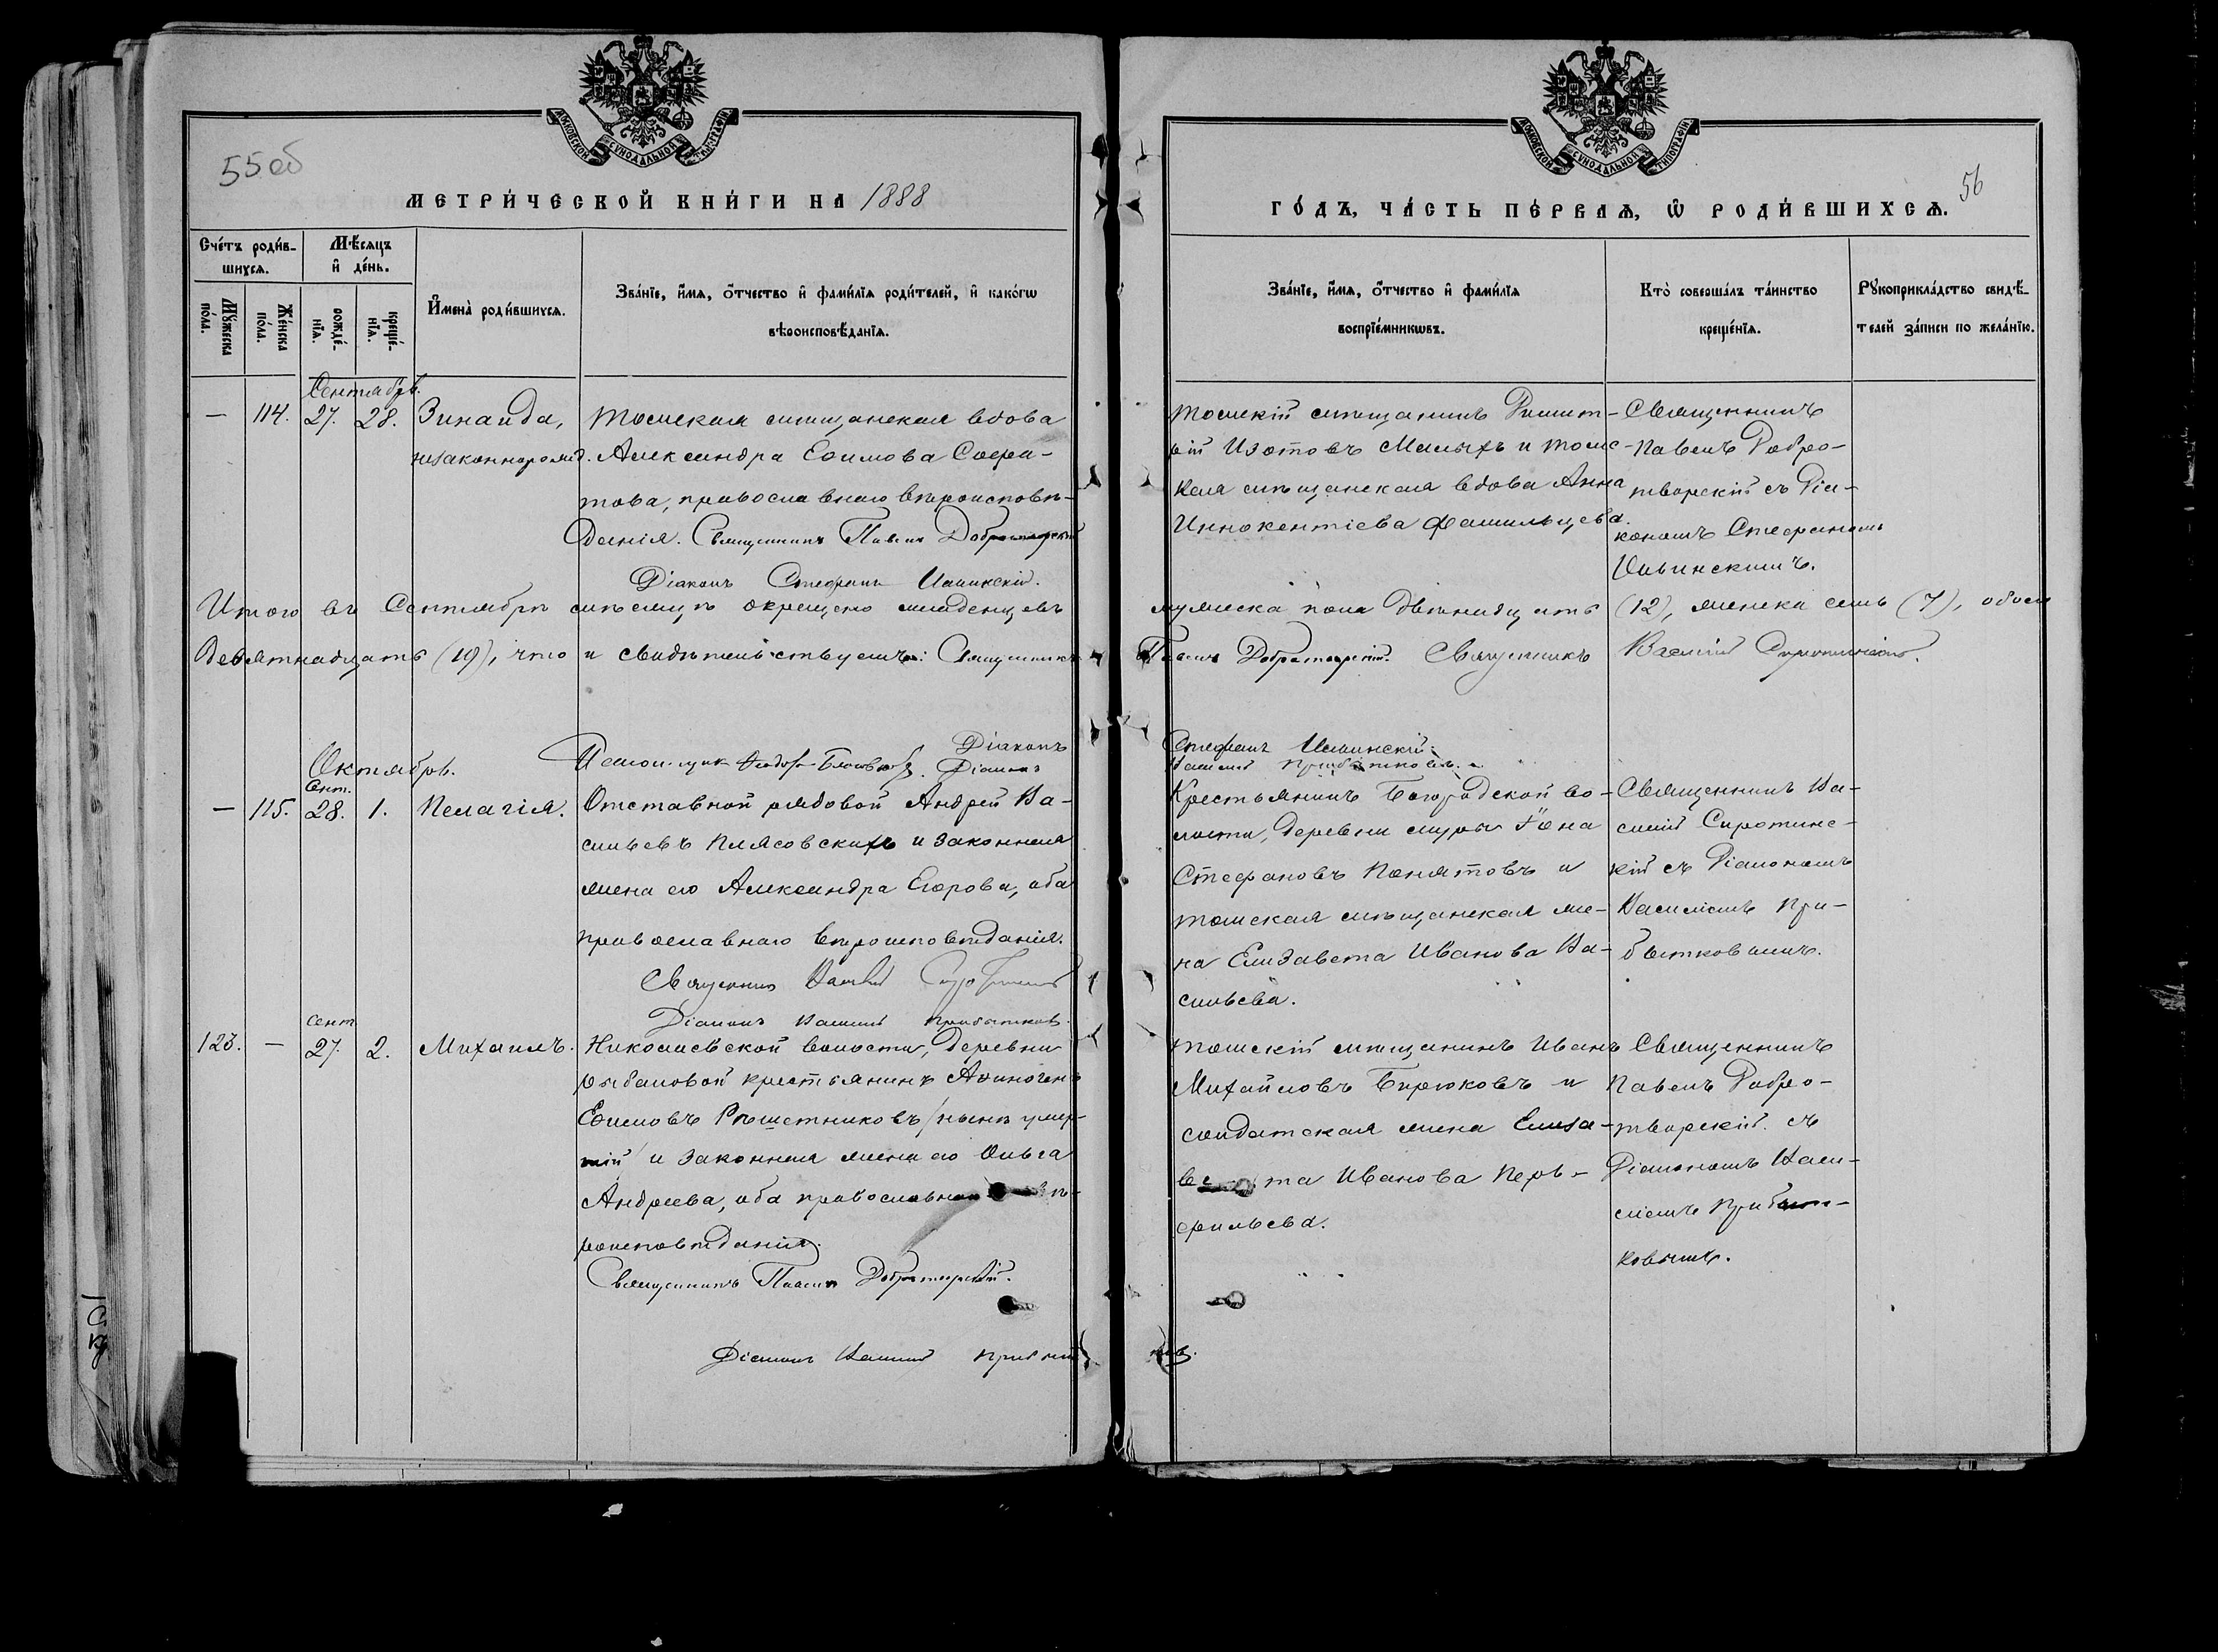 МОСКОВСКОЙ СѴНОДАЛЬНОЙ ТИПОГРАФІИ
55 об
МЕТРИ́ЧЕСКОЙ КНИ́ГИ НА 1888
Сче́тъ роди́в-
шихсѧ.
Мѣ́сѧцъ
и҆ де́нь.
Мꙋ́жеска
по́ла.
Же́нска
по́ла.
рожде́-
нїѧ.
креще́-
нїѧ.
И҆мена̀ роди́вшихсѧ.
Зва́нїе, и҆́мѧ, ѻ҆́тчество и҆ фами́лїѧ роди́телей, и҆ како́гѡ
вѣроисповѣ́данїѧ.
Сентябрь.
— 114. 27. 28. Зинаида,
незаконнорожд.
Томская мѣщанская вдова
Александра Ефимова
това, православнаго вѣроисповѣ-
данія. Священникъ Павелъ Добротворскій
Діаконъ Стефанъ Ильинскій.
Итого въ Сентябрѣ мѣсяцѣ окрещено младенцевъ
девятнадцать (19), что и свидѣтельствуемъ: Священникъ
Діаконъ
Псаломщик Ѳеодоръ
Діаконъ
Октябрь.
Сент.
— 115. 28. 1. Пелагія.
Отставной рядовой Андрей Ва-
сильевъ Плясовскихъ и законная
жена его Александра Егорова, оба
православнаго вѣроисповѣданія.
Священникъ Василій Сиротинскій
Діаконъ Василій Прибытковъ.
сент
123. — 27. 2. Михаилъ.
Николаевской волости, деревни
Рыбаловой крестьянинъ Аѳиногенъ
Ефимовъ Рѣшетниковъ /нынѣ умер-
шій/ и законная жена его Ольга
Андреева, оба православнаго вѣ-
роисповѣданія.
Священникъ Павелъ Добротворскій.
Діаконъ Василій Прибыт
МОСКОВСКОЙ СѴНОДАЛЬНОЙ ТИПОГРАФІИ
56
ГО́ДЪ, ЧА́СТЬ ПЕ́РВАѦ, Ѡ҆ РОДИ́ВШИХСѦ.
Зва́нїе, и҆́мѧ, ѻ҆́тчество и҆ фами́лїѧ
воспрїе́мникѡвъ.
Кто̀ соверша́лъ та́инство
креще́нїѧ.
Рꙋкоприкла́дство свидѣ́-
телей за́писи по жела́нїю.
Томскій мѣщанинъ Димит-
рій Изотовъ Малыхъ и томс-
кая мѣщанская вдова Анна
Иннокентіева Фамильцева.
Священникъ
Павелъ Добро-
творскій съ Діа-
кономъ Стефаномъ
Ильинскимъ.
мужеска пола двѣнадцать (12), женска семь (7), обоего
Павелъ Добротворскій. Священникъ Василій Сиротинскій.
Стефанъ Ильинскій.
Василій Прибытковъ.
Крестьянинъ Богородской во-
лости, деревни Іона
Стефановъ Понятовъ и
томская мѣщанская же-
на Елизавета Иванова Ва-
сильева.
Священникъ Ва-
силій Сиротинс-
кій съ Діакономъ
Василіемъ При-
бытковымъ.
Томскій мѣщанинъ Иванъ
Михайловъ Бирюковъ и
солдатская жена Елиза-
вета Иванова Перь-
фильева.
Священникъ
Павелъ Добро-
творскій. съ
Діакономъ Васи-
ліемъ Прибыт-
ковымъ.
ковъ.